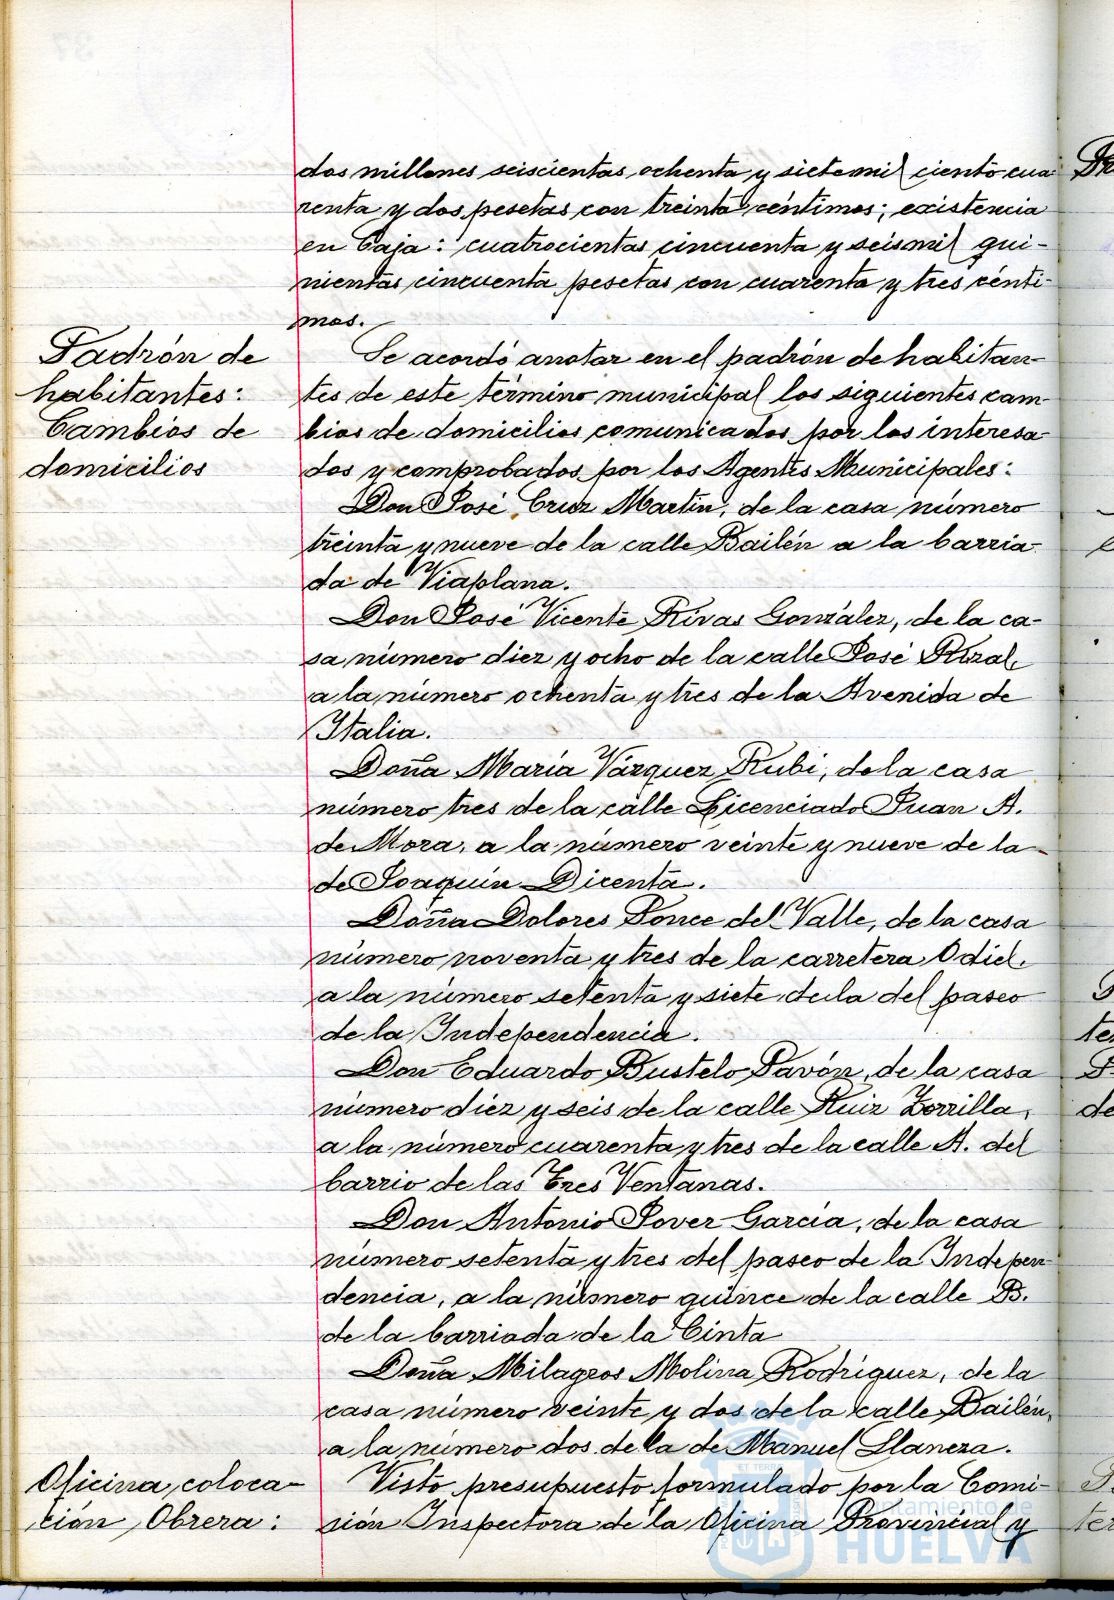 dos millones seiscientas ochenta y siete mil ciento cua-
renta y dos pesetas con treinta céntimos; existencia
en Caja: cuatrocientas cincuenta y seis mil qui-
nientas cincuenta pesetas con cuarenta y tres cénti-
mos.
Padrón de
habitantes:
Cambios de
domicilios
Se acordó anotar en el padrón de habitan-
tes de este término municipal los siguientes cam-
bios de domicilios comunicados por los interesa-
dos y comprobados por los Agentes Municipales:
Don José Cruz Martín, de la casa número
treinta y nueve de la calle Bailén a la barria-
da de Viaplana.
Don José Vicente Rivas González, de la ca-
sa número diez y ocho de la calle José Rizal,
a la número ochenta y tres de la Avenida de
Italia.
Doña María Vázquez Rubi, de la casa
número tres de la calle Licenciado Juan A.
de Mora, a la número veinte y nueve de la
de Joaquín Dicenta.
Doña Dolores Ponce del Valle, de la casa
número noventa y tres de la carretera Odiel,
a la número setenta y siete de la del paseo
de la Independencia.
Don Eduardo Bustelo Pavón, de la casa
número diez y seis de la calle Ruiz Zorrilla,
a la número cuarenta y tres de la calle A. del
barrio de las Tres Ventanas.
Don Antonio Jover García, de la casa
número setenta y tres del paseo de la Indepen-
dencia, a la número quince de la calle B.
de la barriada de la Cinta
Doña Milagros Molina Rodríguez, de la
casa número veinte y dos de la calle Bailén,
a la número dos de la de Manuel Llaneza.
Oficina coloca-
ción Obrera:
Visto presupuesto formulado por la Comi-
sión Inspectora de la Oficina Provincial y
Ayuntamiento de
HUELVA